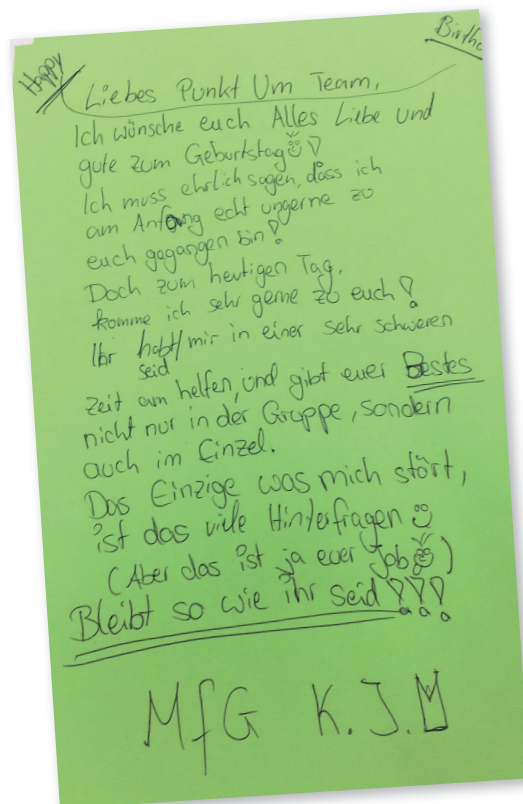 Happy
Birthd
Liebes Punkt Um Team,
Ich wünsche euch Alles Liebe und
gute zum Geburtstag!
Ich muss ehrlich sagen, dass ich
am Anfang echt ungerne zu
euch gegangen bin!
Doch zum heutigen Tag,
komme ich sehr gerne zu euch!
Ihr habt/ mir in einer sehr schweren
seid
Zeit am helfen, und gibt euer Bestes
nicht nur in der Gruppe, sondern
auch im Einzel.
Das Einzige was mich stört,
ist das viele Hinterfragen
(Aber das ist ja euer Job)
Bleibt so wie ihr seid!!!
MfG K.J.